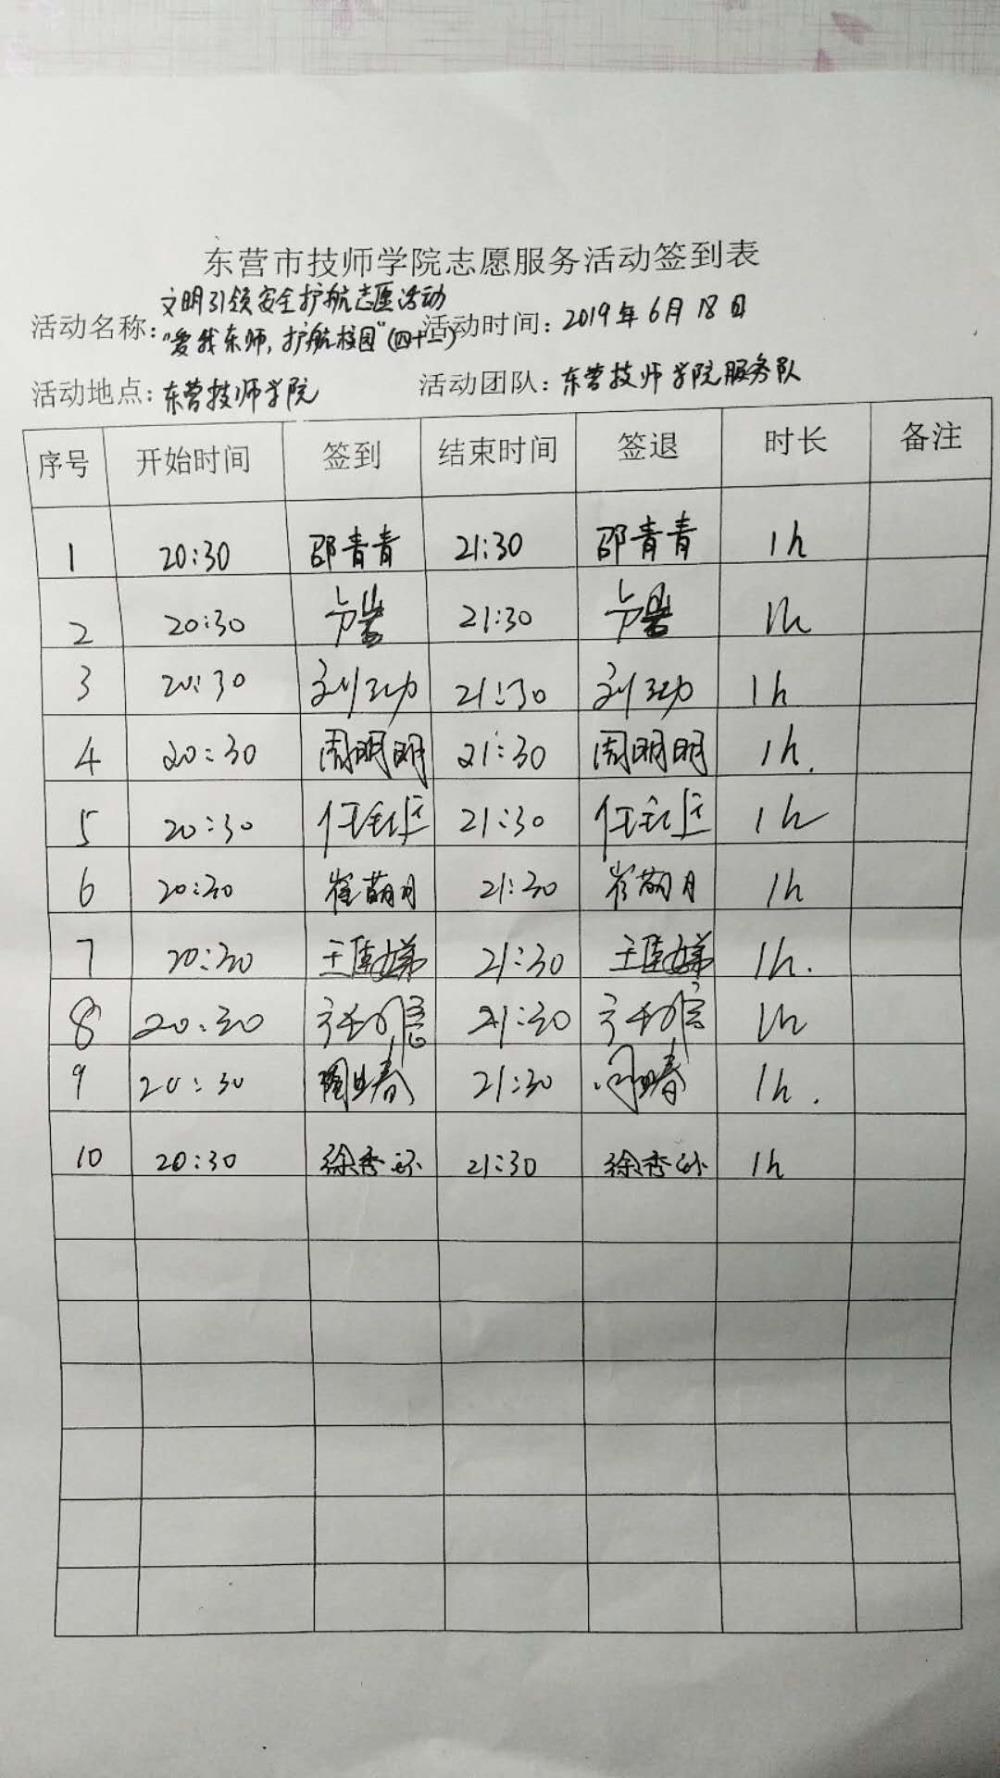 东营市技师学院志愿服务活动签到表
文明引领安全护航志愿活动
活动名称: "爱我东师,护航校园"(四十二) 活动时间: 2019年6月18日
活动地点: 东营技师学院 活动团队: 东营技师学院服务队
序号 开始时间 签到 结束时间 签退 时长 备注
1 20:30 邵青青 21:30 邵青青 1h
2 20:30 21:30 1h
3 20:30 21:30 1h
4 20:30 周明明 21:30 周明明 1h.
5 20:30 21:30 1h
6 20:30 崔萌月 21:30 崔萌月 1h
7 20:30 21:30 1h.
8 20:30 21:30 1h
9 20:30 21:30 1h.
10 20:30 21:30 1h